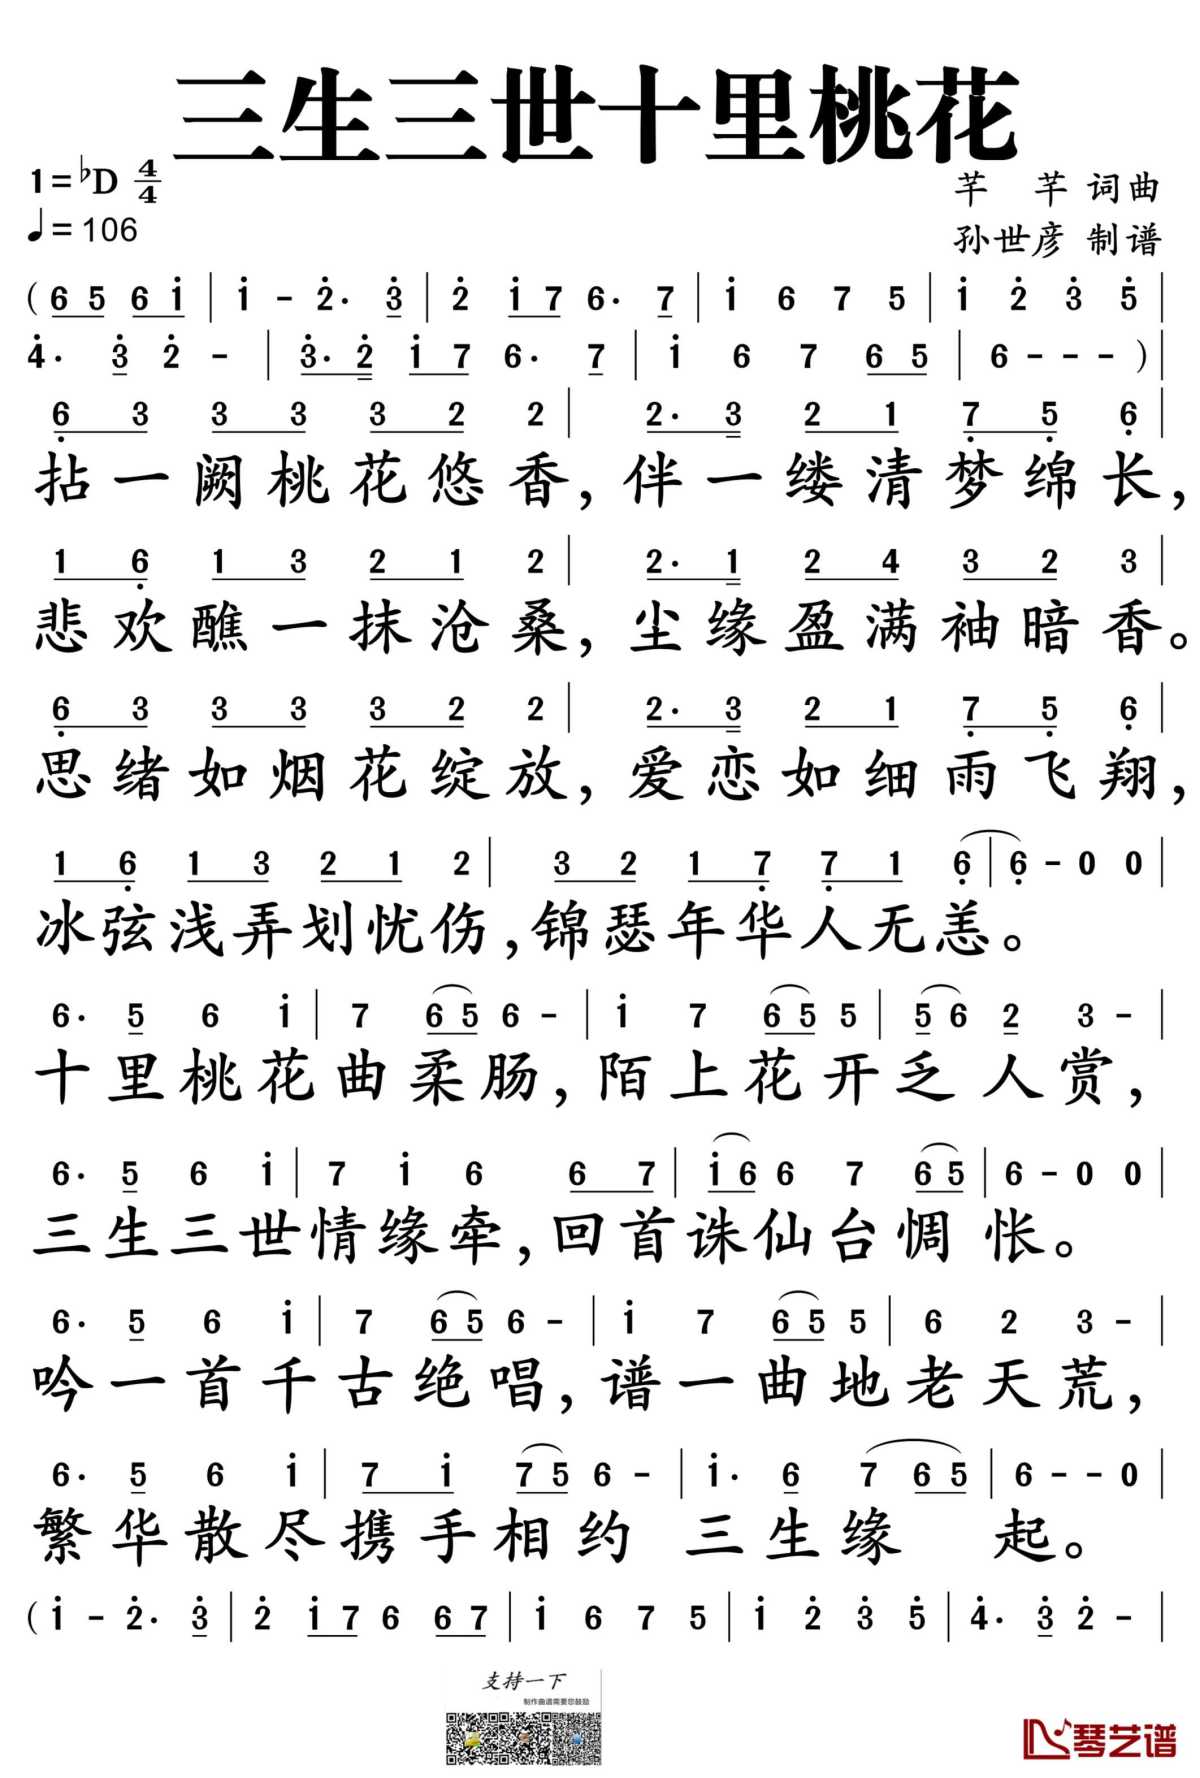 三生三世十里桃花
1=♭D 4/4
芊 芊 词曲
♩= 106
孙世彦 制谱
( 6 5 6 i | i - 2̇· 3̇ | 2̇ i 7 6· 7 | i 6 7 5 | i 2̇ 3̇ 5̇ |
4̇· 3̇ 2̇ - | 3̇· 2̇ i 7 6· 7 | i 6 7 6 5 | 6 - - - ) |
6̣ 3 3 3 3 2 2 | 2· 3 2 1 7̣ 5̣ 6̣ |
拈一阙桃花悠香,伴一缕清梦绵长,
1 6̣ 1 3 2 1 2 | 2· 1 2 4 3 2 3 |
悲欢醮一抹沧桑,尘缘盈满袖暗香。
6̣ 3 3 3 3 2 2 | 2· 3 2 1 7̣ 5̣ 6̣ |
思绪如烟花绽放,爱恋如细雨飞翔,
1 6̣ 1 3 2 1 2 | 3 2 1 7̣ 7̣ 1 6̣ | 6̣ - 0 0 |
冰弦浅弄划忧伤,锦瑟年华人无恙。
6· 5 6 i | 7 6 5 6 - | i 7 6 5 5 | 5 6 2 3 - |
十里桃花曲柔肠,陌上花开乏人赏,
6· 5 6 i | 7 i 6 6 7 | i 6 6 7 6 5 | 6 - 0 0 |
三生三世情缘牵,回首诛仙台惆怅。
6· 5 6 i | 7 6 5 6 - | i 7 6 5 5 | 6 2 3 - |
吟一首千古绝唱,谱一曲地老天荒,
6· 5 6 i | 7 i 7 5 6 - | i· 6 7 6 5 | 6 - - 0 |
繁华散尽携手相约 三生缘 起。
( i - 2̇· 3̇ | 2̇ i 7 6 6 7 | i 6 7 5 | i 2̇ 3̇ 5̇ | 4̇· 3̇ 2̇ - |
支持一下
制作曲谱需要您鼓励
琴艺谱